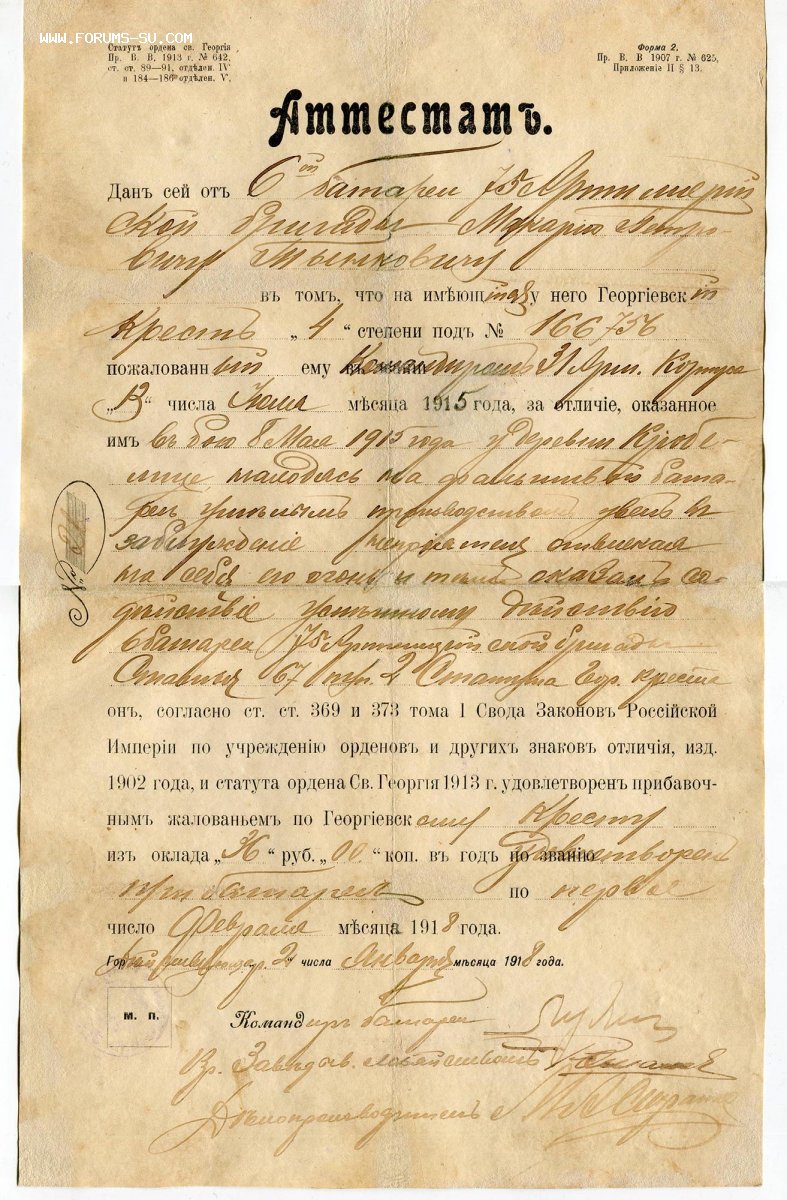 WWW.FORUMS-SU.COM
Статутъ ордена св. Георгія
Пр. В. В. 1913 г. № 642,
ст. ст. 89—91, отдѣлен. IV
и 184—186 отдѣлен. V.
Форма 2.
Пр. В. В 1907 г. № 625,
Приложеніе II § 13.
Аттестатъ.
Данъ сей отъ 6ой батареи 75 Артиллерій
ской бригады Макарію Петро-
вичу Тылковичу
въ томъ, что на имѣющійся у него Георгіевскій
крестъ „4“ степени подъ № 166756
пожалованный ему Командиромъ 31 Арм. Корпуса
„13“ числа Іюля мѣсяца 1915 года, за отличіе, оказанное
имъ въ бою 8 Мая 1915 года у деревни
находясь на фальшивой бата-
реѣ, умѣлымъ производствомъ ввелъ въ
заблужденіе непріятеля отвлекая
на себя его огонь и тѣмъ оказалъ со-
дѣйствіе успѣшному дѣйствію
6 батареи 75 Артиллерійской бригады
Статья 67 п. 2 Статута Геор. креста
онъ, согласно ст. ст. 369 и 373 тома I Свода Законовъ Россійской
Имперіи по учрежденію орденовъ и другихъ знаковъ отличія, изд.
1902 года, и статута ордена Св. Георгія 1913 г. удовлетворенъ прибавоч-
нымъ жалованьемъ по Георгіевскому кресту
изъ оклада „36“ руб. „00“ коп. въ годъ по званію удовлетворенъ
при батареѣ по первое
число Февраля мѣсяца 1918 года.
2 числа Января мѣсяца 1918 года.
М. П.
Командиръ батареи
Вр. Завѣдыв. хозяйствомъ
Дѣлопроизводитель